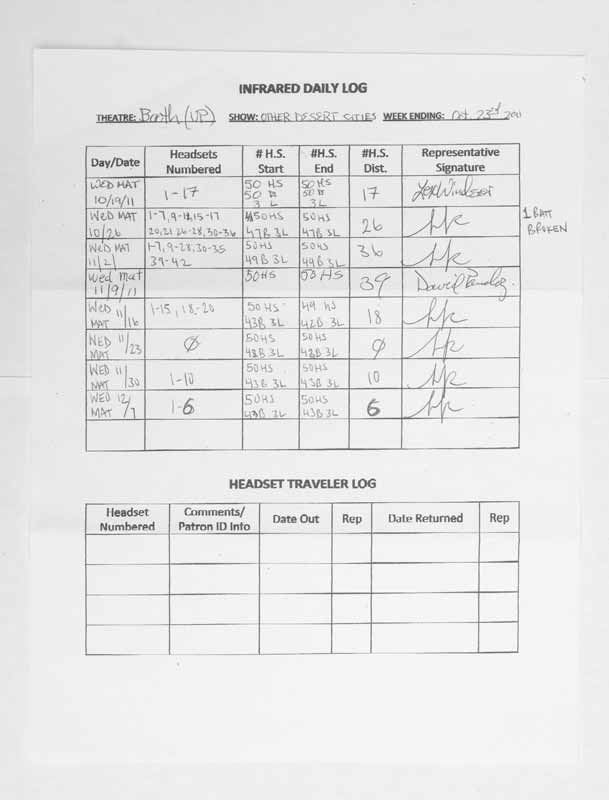 INFRARED DAILY LOG
THEATRE: Booth (UP) SHOW: OTHER DESERT CITIES WEEK ENDING: Oct. 23rd 2011
Day/Date Headsets Numbered # H.S. Start #H.S. End #H.S. Dist. Representative Signature
WED MAT 10/19/11 1-17 50 HS 50 B 3 L 50 HS 50 B 3L 17
WED MAT 10/26 1-7,9-12,15-17 20,21,26-28,30-36 50HS 47B 3L 50HS 47B 3L 26 1 BATT BROKEN
Wed MAT 11/2 1-7,9-28,30-35 39-42 50HS 49B 3L 50HS 49B 3L 36
Wed mat 11/9/11 50HS 50HS 39 David
WED MAT 11/16 1-15, 18-20 50HS 43B 3L 49 hs 42B 3L 18
WED MAT 11/23 Ø 50HS 43B 3L 50HS 43B 3L Ø
WED MAT 11/30 1-10 50HS 43B 3L 50HS 43B 3L 10
WED MAT 12/7 1-6 50HS 43B 3L 50HS 43B 3L 6
HEADSET TRAVELER LOG
Headset Numbered Comments/ Patron ID Info Date Out Rep Date Returned Rep